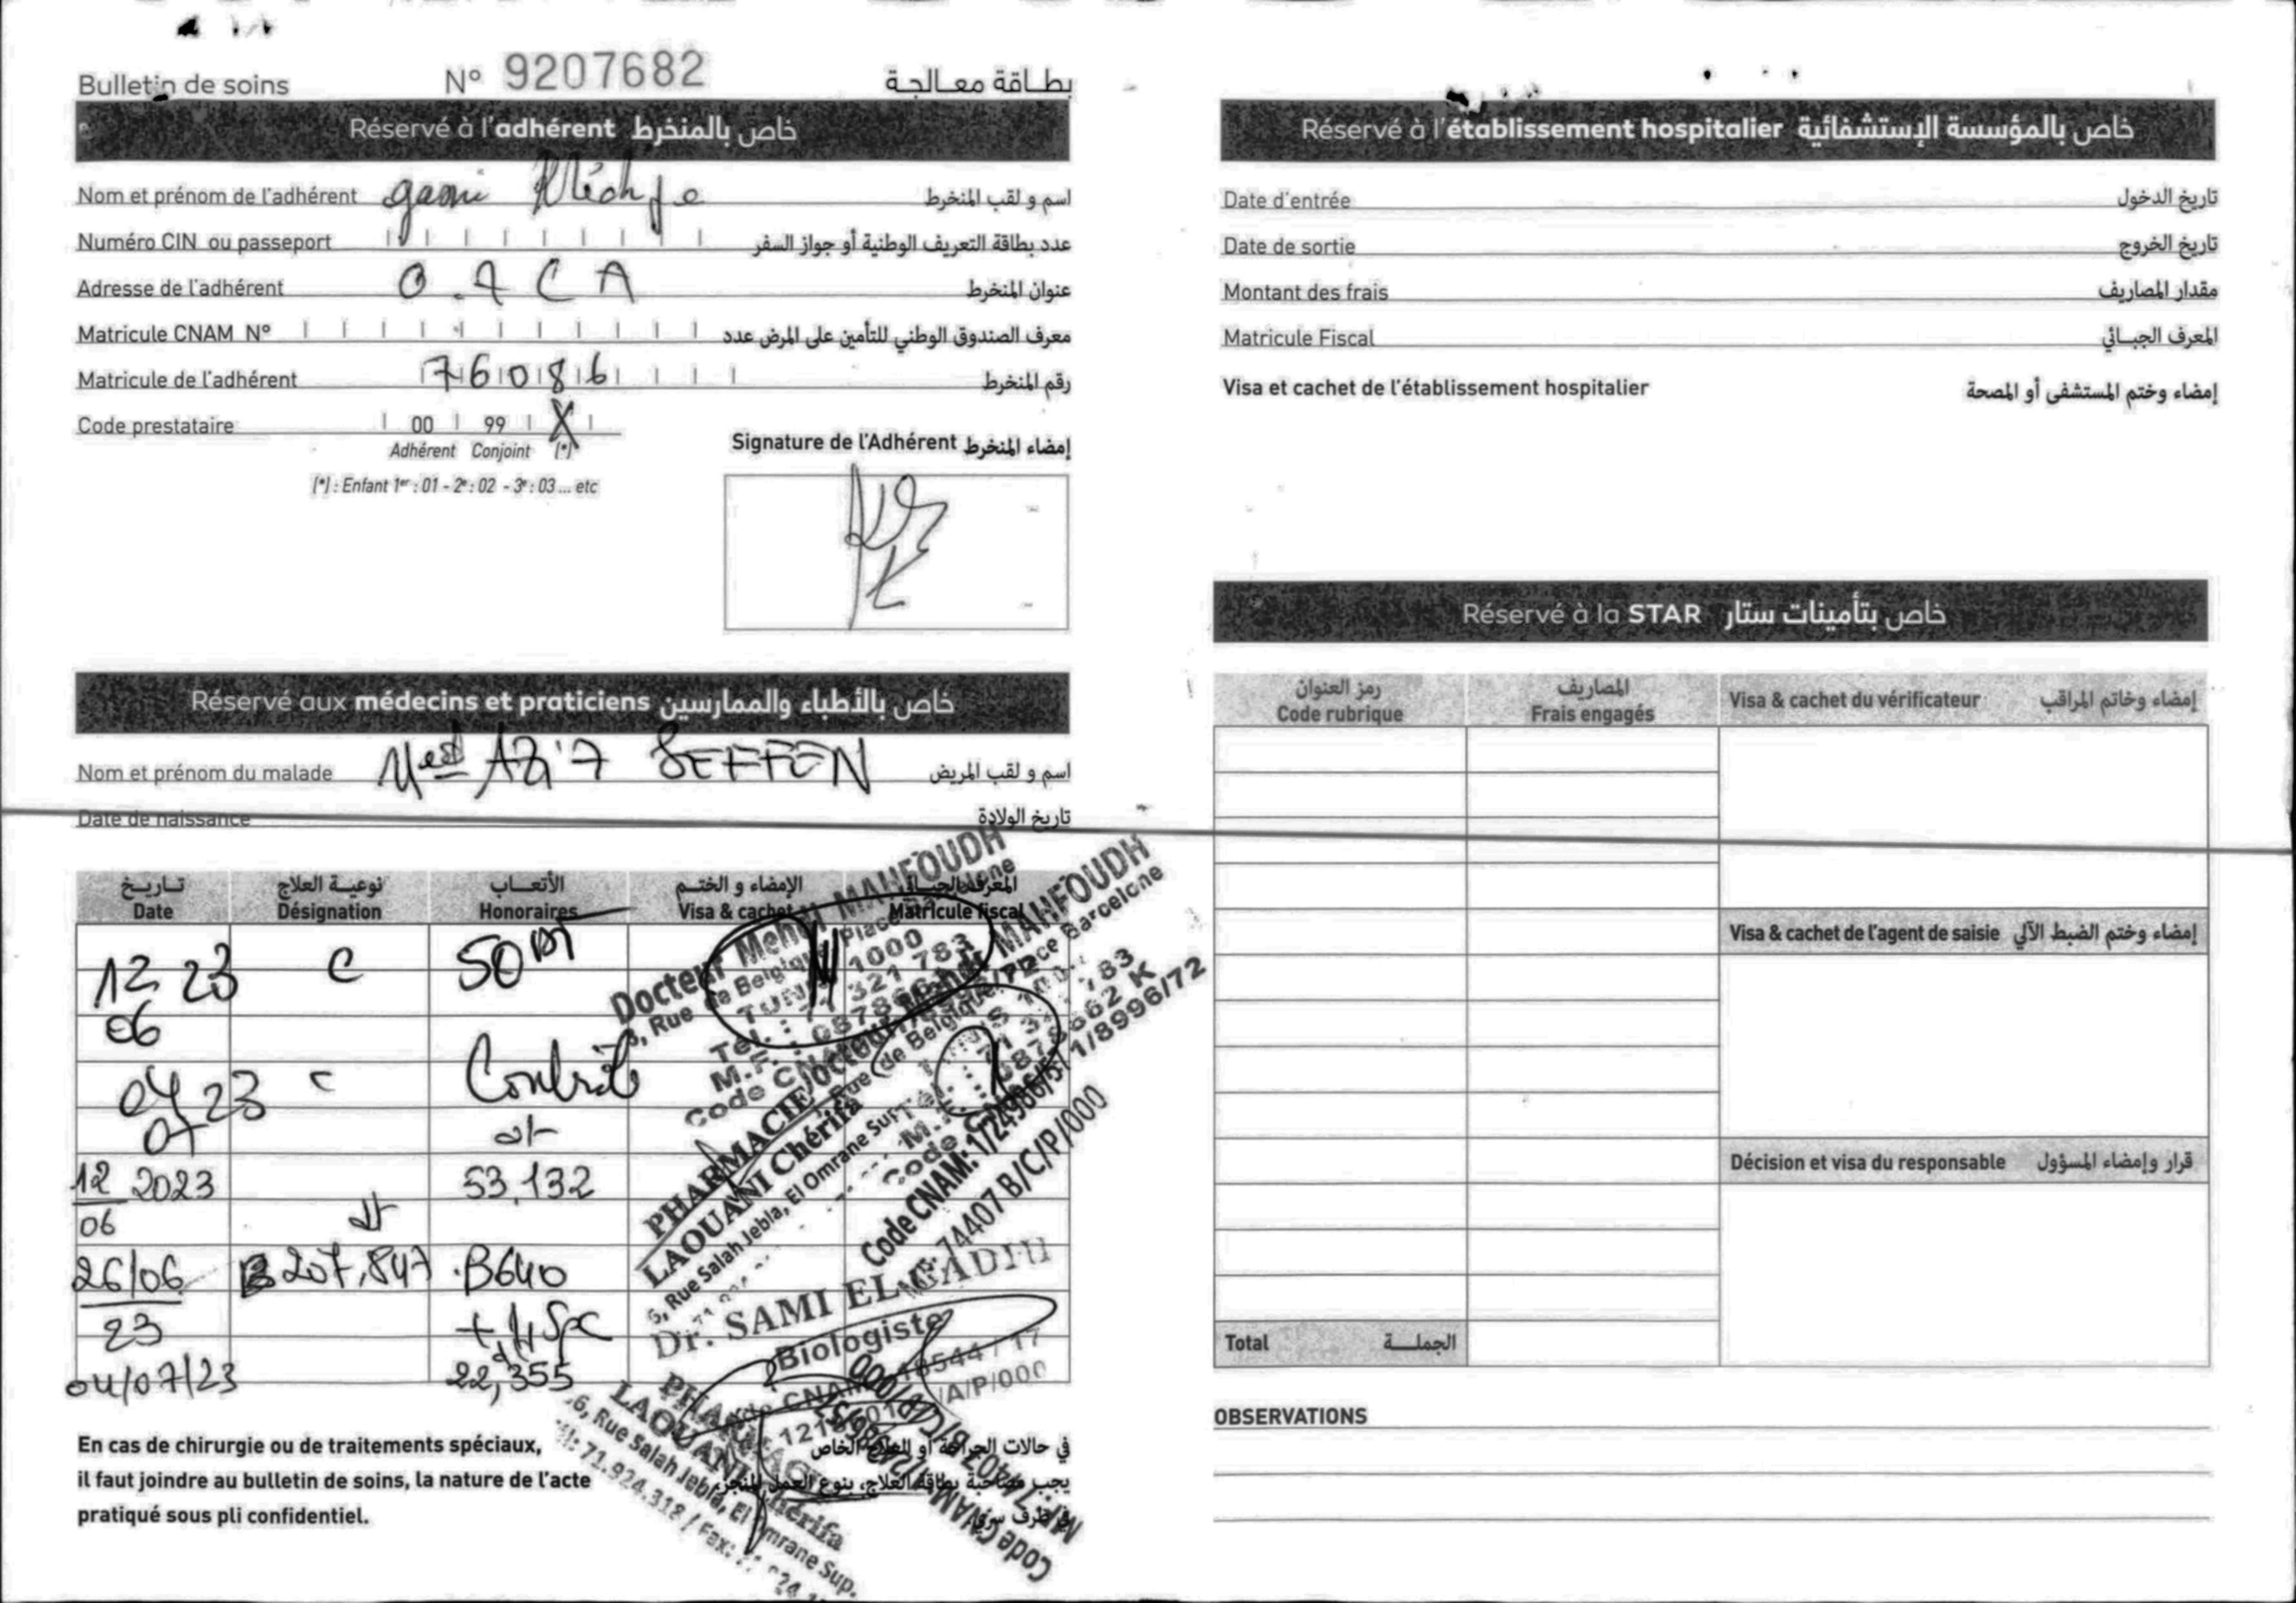 Bulletin de soins N° 9207682 بطاقة معالجة
Réservé à l'adhérent خاص بالمنخرط
Nom et prénom de l'adhérent اسم و لقب المنخرط
Numéro CIN ou passeport عدد بطاقة التعريف الوطنية أو جواز السفر
Adresse de l'adhérent O.A C A عنوان المنخرط
Matricule CNAM N° معرف الصندوق الوطني للتأمين على المرض عدد
Matricule de l'adhérent 76086 رقم المنخرط
Code prestataire 00 99 X
Adhérent Conjoint (*)
(*) : Enfant 1er : 01 - 2e : 02 - 3e : 03 ... etc
Signature de l'Adhérent إمضاء المنخرط
Réservé aux médecins et praticiens خاص بالأطباء والممارسين
Nom et prénom du malade Med Aziz SEFFEN اسم و لقب المريض
Date de naissance تاريخ الولادة
تاريخ نوعية العلاج الأتعاب الإمضاء و الختم المعرف الجبائي
Date Désignation Honoraires Visa & cachet Matricule fiscal
12 06 23 C 50 DT
04 07 23 C Contrôle
12 06 2023 53,132
26/06 23 B 207,847 B640
04/07/23 22,355
Docteur Mehdi MAHFOUDH
3, Rue de Belgique Place Barcelone
TUNIS 1000
Tél. : 71 321 783
Docteur Mehdi MAHFOUDH
Rue de Belgique Place Barcelone
1/8996/72
PHARMACIE
LAOUANI Chérifa
6, Rue Salah Jebla, El Omrane Sup.
Code CNAM: 1/24986/57
MF: 74407 B/C/P/000
Dr. SAMI EL
Biologiste
PHARMACIE
LAOUANI Chérifa
6, Rue Salah Jebla, El Omrane Sup.
71.924.312 / Fax:
Code CNAM
En cas de chirurgie ou de traitements spéciaux,
il faut joindre au bulletin de soins, la nature de l'acte
pratiqué sous pli confidentiel.
في حالات الجراحة أو العلاج الخاص
يجب مصاحبة بطاقة العلاج، بنوع العمل المنجز
في ظرف سري.
Réservé à l'établissement hospitalier خاص بالمؤسسة الإستشفائية
Date d'entrée تاريخ الدخول
Date de sortie تاريخ الخروج
Montant des frais مقدار المصاريف
Matricule Fiscal المعرف الجبائي
Visa et cachet de l'établissement hospitalier إمضاء وختم المستشفى أو المصحة
Réservé à la STAR خاص بتأمينات ستار
رمز العنوان المصاريف
Code rubrique Frais engagés Visa & cachet du vérificateur إمضاء وخاتم المراقب
Visa & cachet de l'agent de saisie إمضاء وختم الضبط الآلي
Décision et visa du responsable قرار وإمضاء المسؤول
Total الجملة
OBSERVATIONS